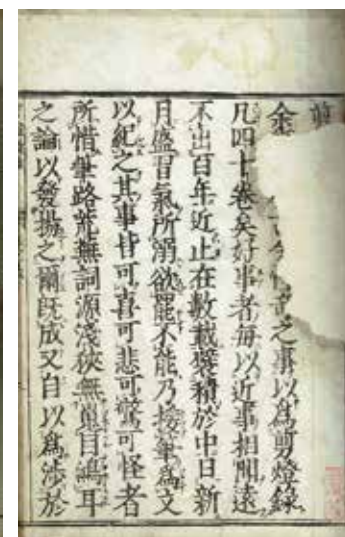 之事以爲剪燈錄
凡四十卷矣好事者每以近事相聞遠
不出百年近止在數載襞積於中日新
月盛習氣所溺欲罷不能乃援筆爲文
以紀之其事皆可喜可悲可驚可怪者
所惜筆路荒無詞源淺狹無嵬目鴻耳
之論以發揚之爾既成又自以爲涉於